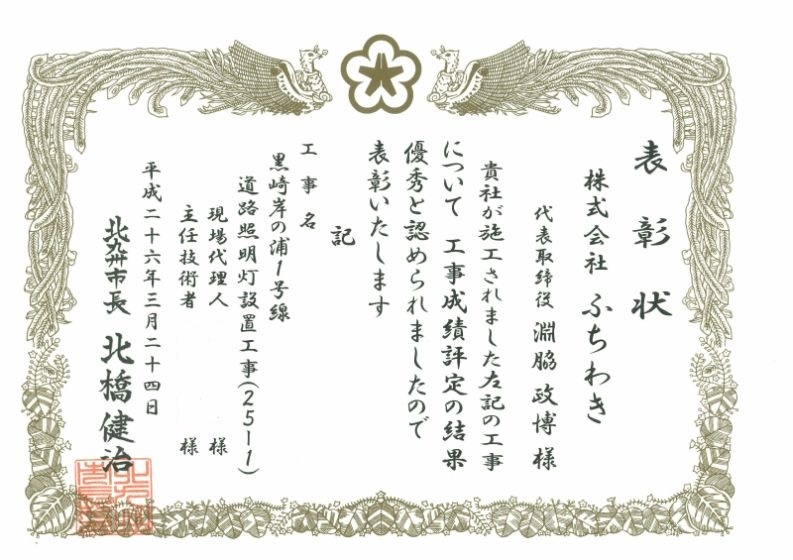 表彰状
株式会社 ふちわき
代表取締役 淵脇 政博 様
貴社が施工されました左記の工事
について 工事成績評定の結果
優秀と認められましたので
表彰いたします
記
工事名
黒崎岸の浦1号線
道路照明灯設置工事(25-1)
現場代理人 様
主任技術者 様
平成二十六年三月二十四日
北九州市長 北橋健治